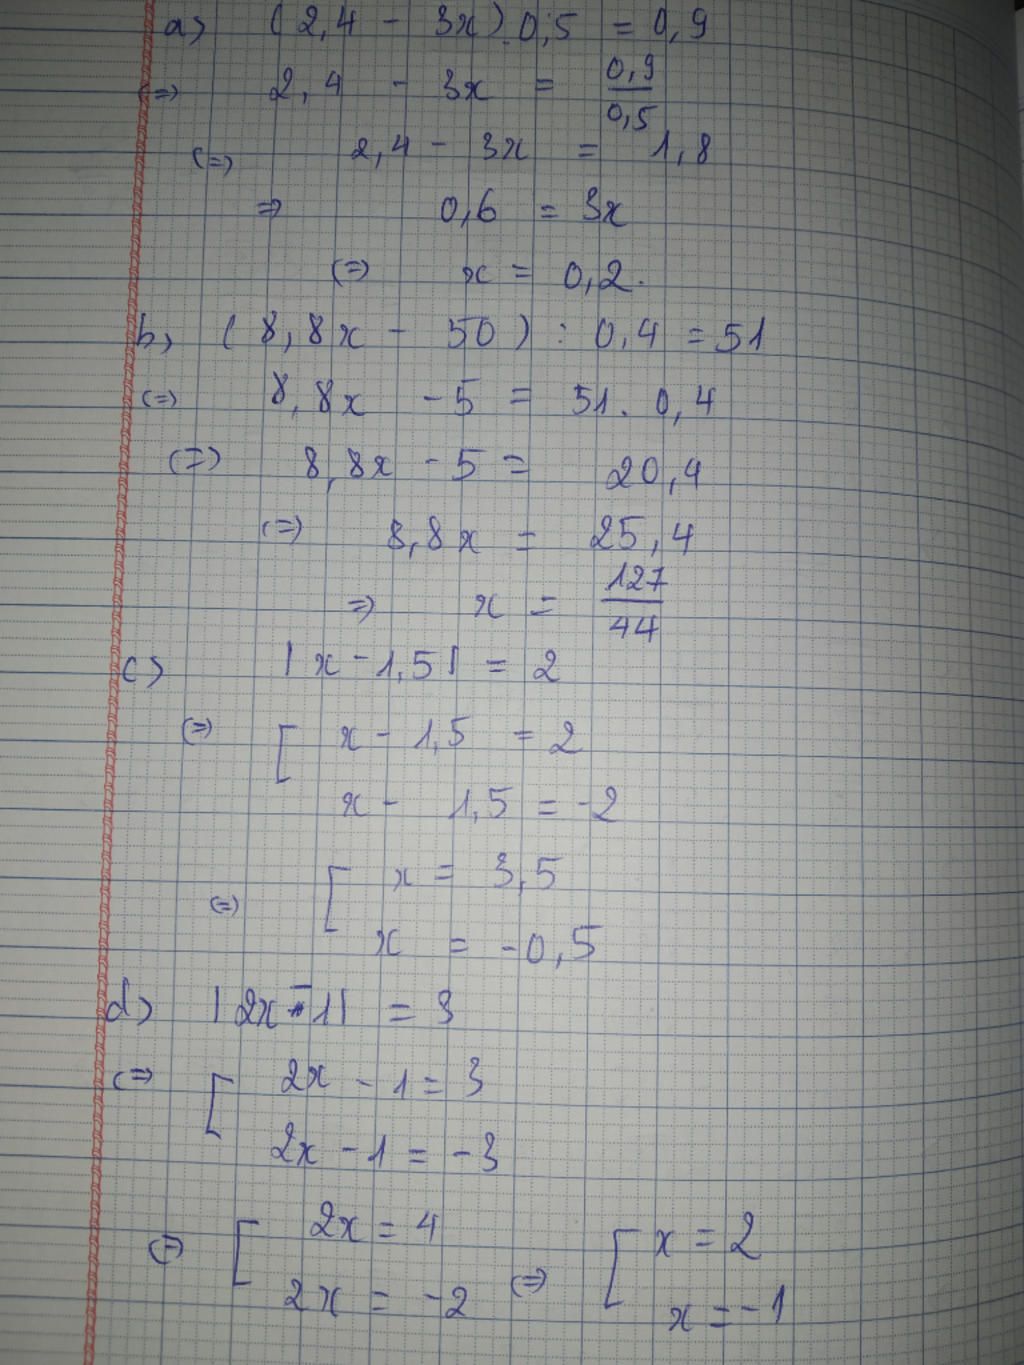 a) (2,4 - 3x).0,5 = 0,9
(=) 2,4 - 3x = 0,9/0,5
(=) 2,4 - 3x = 1,8
=) 0,6 = 3x
(=) x = 0,2.
b) (8,8x - 50) : 0,4 = 51
(=) 8,8x - 5 = 51. 0,4
(=) 8,8x - 5 = 20,4
(=) 8,8x = 25,4
=) x = 127/44
c) |x - 1,5| = 2
(=) [ x - 1,5 = 2
x - 1,5 = -2
(=) [ x = 3,5
x = -0,5
d) |2x - 1| = 3
(=) [ 2x - 1 = 3
2x - 1 = -3
(=) [ 2x = 4 (=) [ x = 2
2x = -2 x = -1